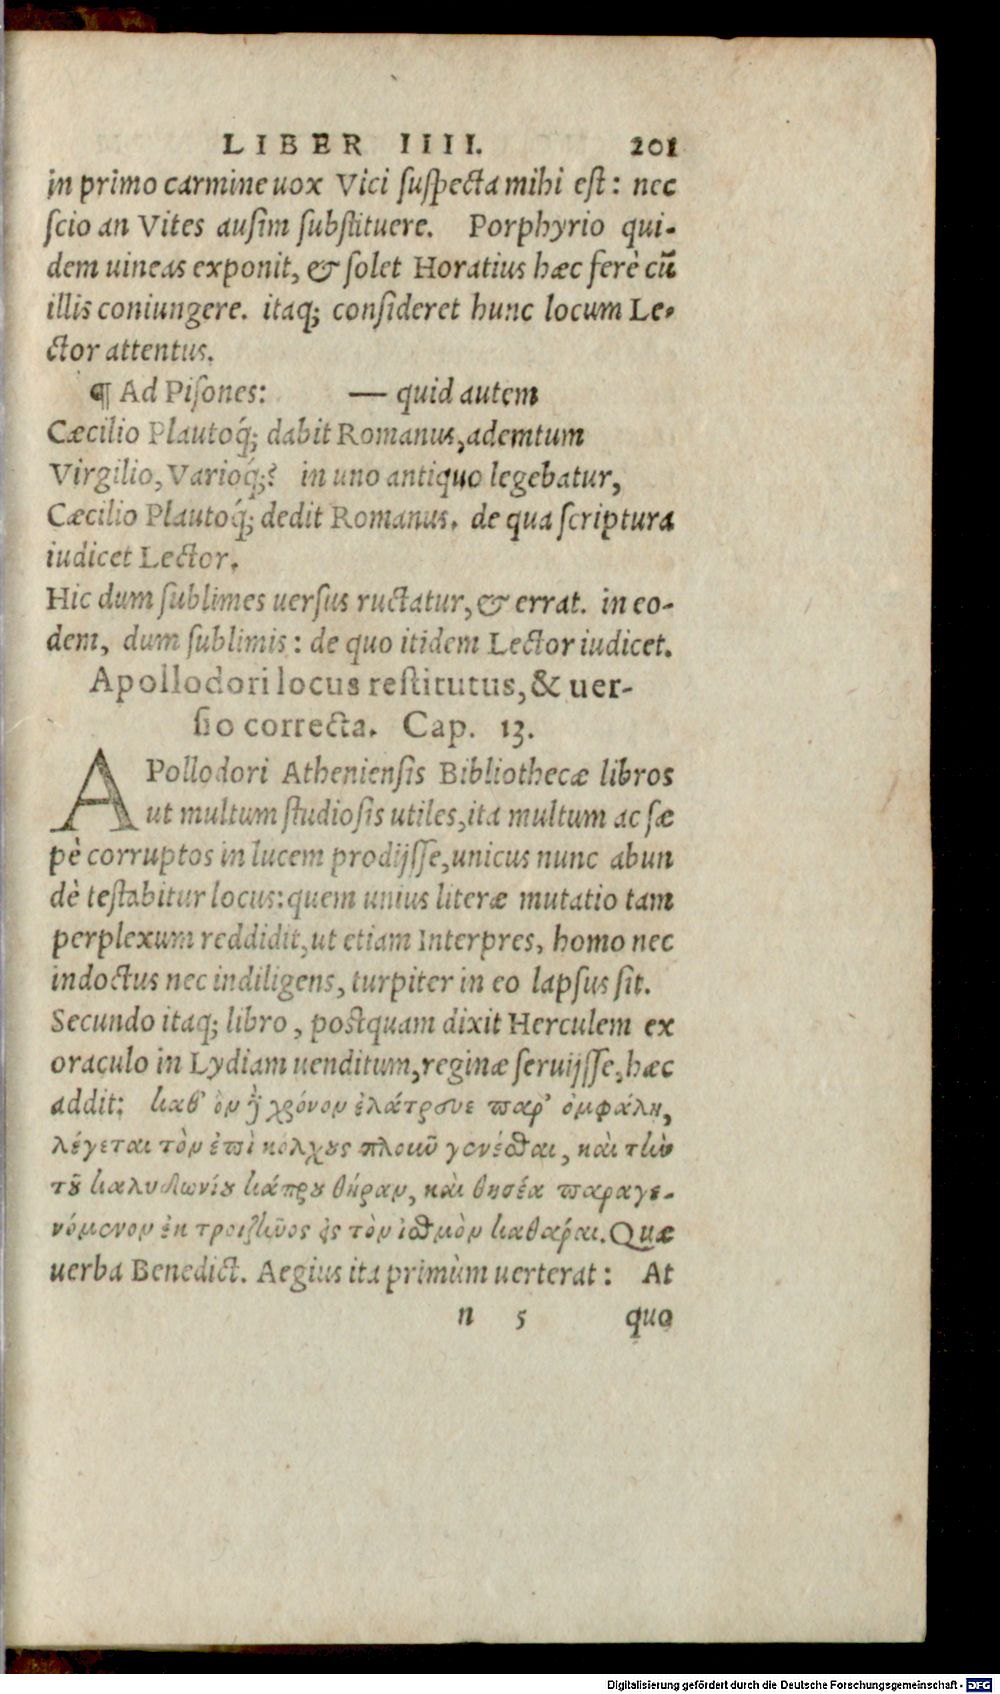 LIBER IIII. 201
in primo carmine uox Vici ſuſpecta mihi eſt: nec
ſcio an Vites auſim ſubſtituere. Porphyrio qui-
dem uineas exponit, & ſolet Horatius hæc ferè cū
illis coniungere. itaq; conſideret hunc locum Le-
ctor attentus.
¶ Ad Piſones: — quid autem
Cæcilio Plautoq́; dabit Romanus, ademtum
Virgilio, Varioq́;? in uno antiquo legebatur,
Cæcilio Plautoq́; dedit Romanus. de qua ſcriptura
iudicet Lector.
Hic dum ſublimes uerſus ructatur, & errat. in eo-
dem, dum ſublimis: de quo itidem Lector iudicet.
Apollodori locus reſtitutus, & uer-
ſio correcta. Cap. 13.
APollodori Athenienſis Bibliothecæ libros
ut multum ſtudioſis utiles, ita multum ac ſæ
pè corruptos in lucem prodijſſe, unicus nunc abun
dè teſtabitur locus: quem unius literæ mutatio tam
perplexum reddidit, ut etiam Interpres, homo nec
indoctus nec indiligens, turpiter in eo lapſus ſit.
Secundo itaq; libro, poſtquam dixit Herculem ex
oraculo in Lydiam uenditum, reginæ ſeruijſſe, hæc
addit: καθ' ὃν ἢ χρόνον ἐλάτρευε παρ' ὀμφάλῃ,
λέγεται τὸν ἐπὶ κόλχους πλοῦν γενέσθαι, καὶ τὴν
τοῦ καλυδωνίου κάπρου θήραν, καὶ θησέα παραγε-
νόμενον ἐκ τροιζῆνος εἰς τὸν ἰσθμὸν καθᾶραι. Quæ
uerba Benedict. Aegius ita primùm uerterat: At
n 5 quo
Digitalisierung gefördert durch die Deutsche Forschungsgemeinschaft - DFG